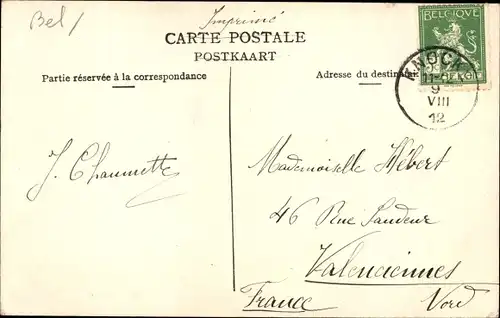 Bel/
Imprimé
CARTE POSTALE
POSTKAART
Partie réservée à la correspondance
Adresse du destinat
BELGIQUE
BELGIË
KNOCK
11-12
9
VIII
12
Mademoiselle Hébert
46 Rue
Valenciennes
France Nord
J.